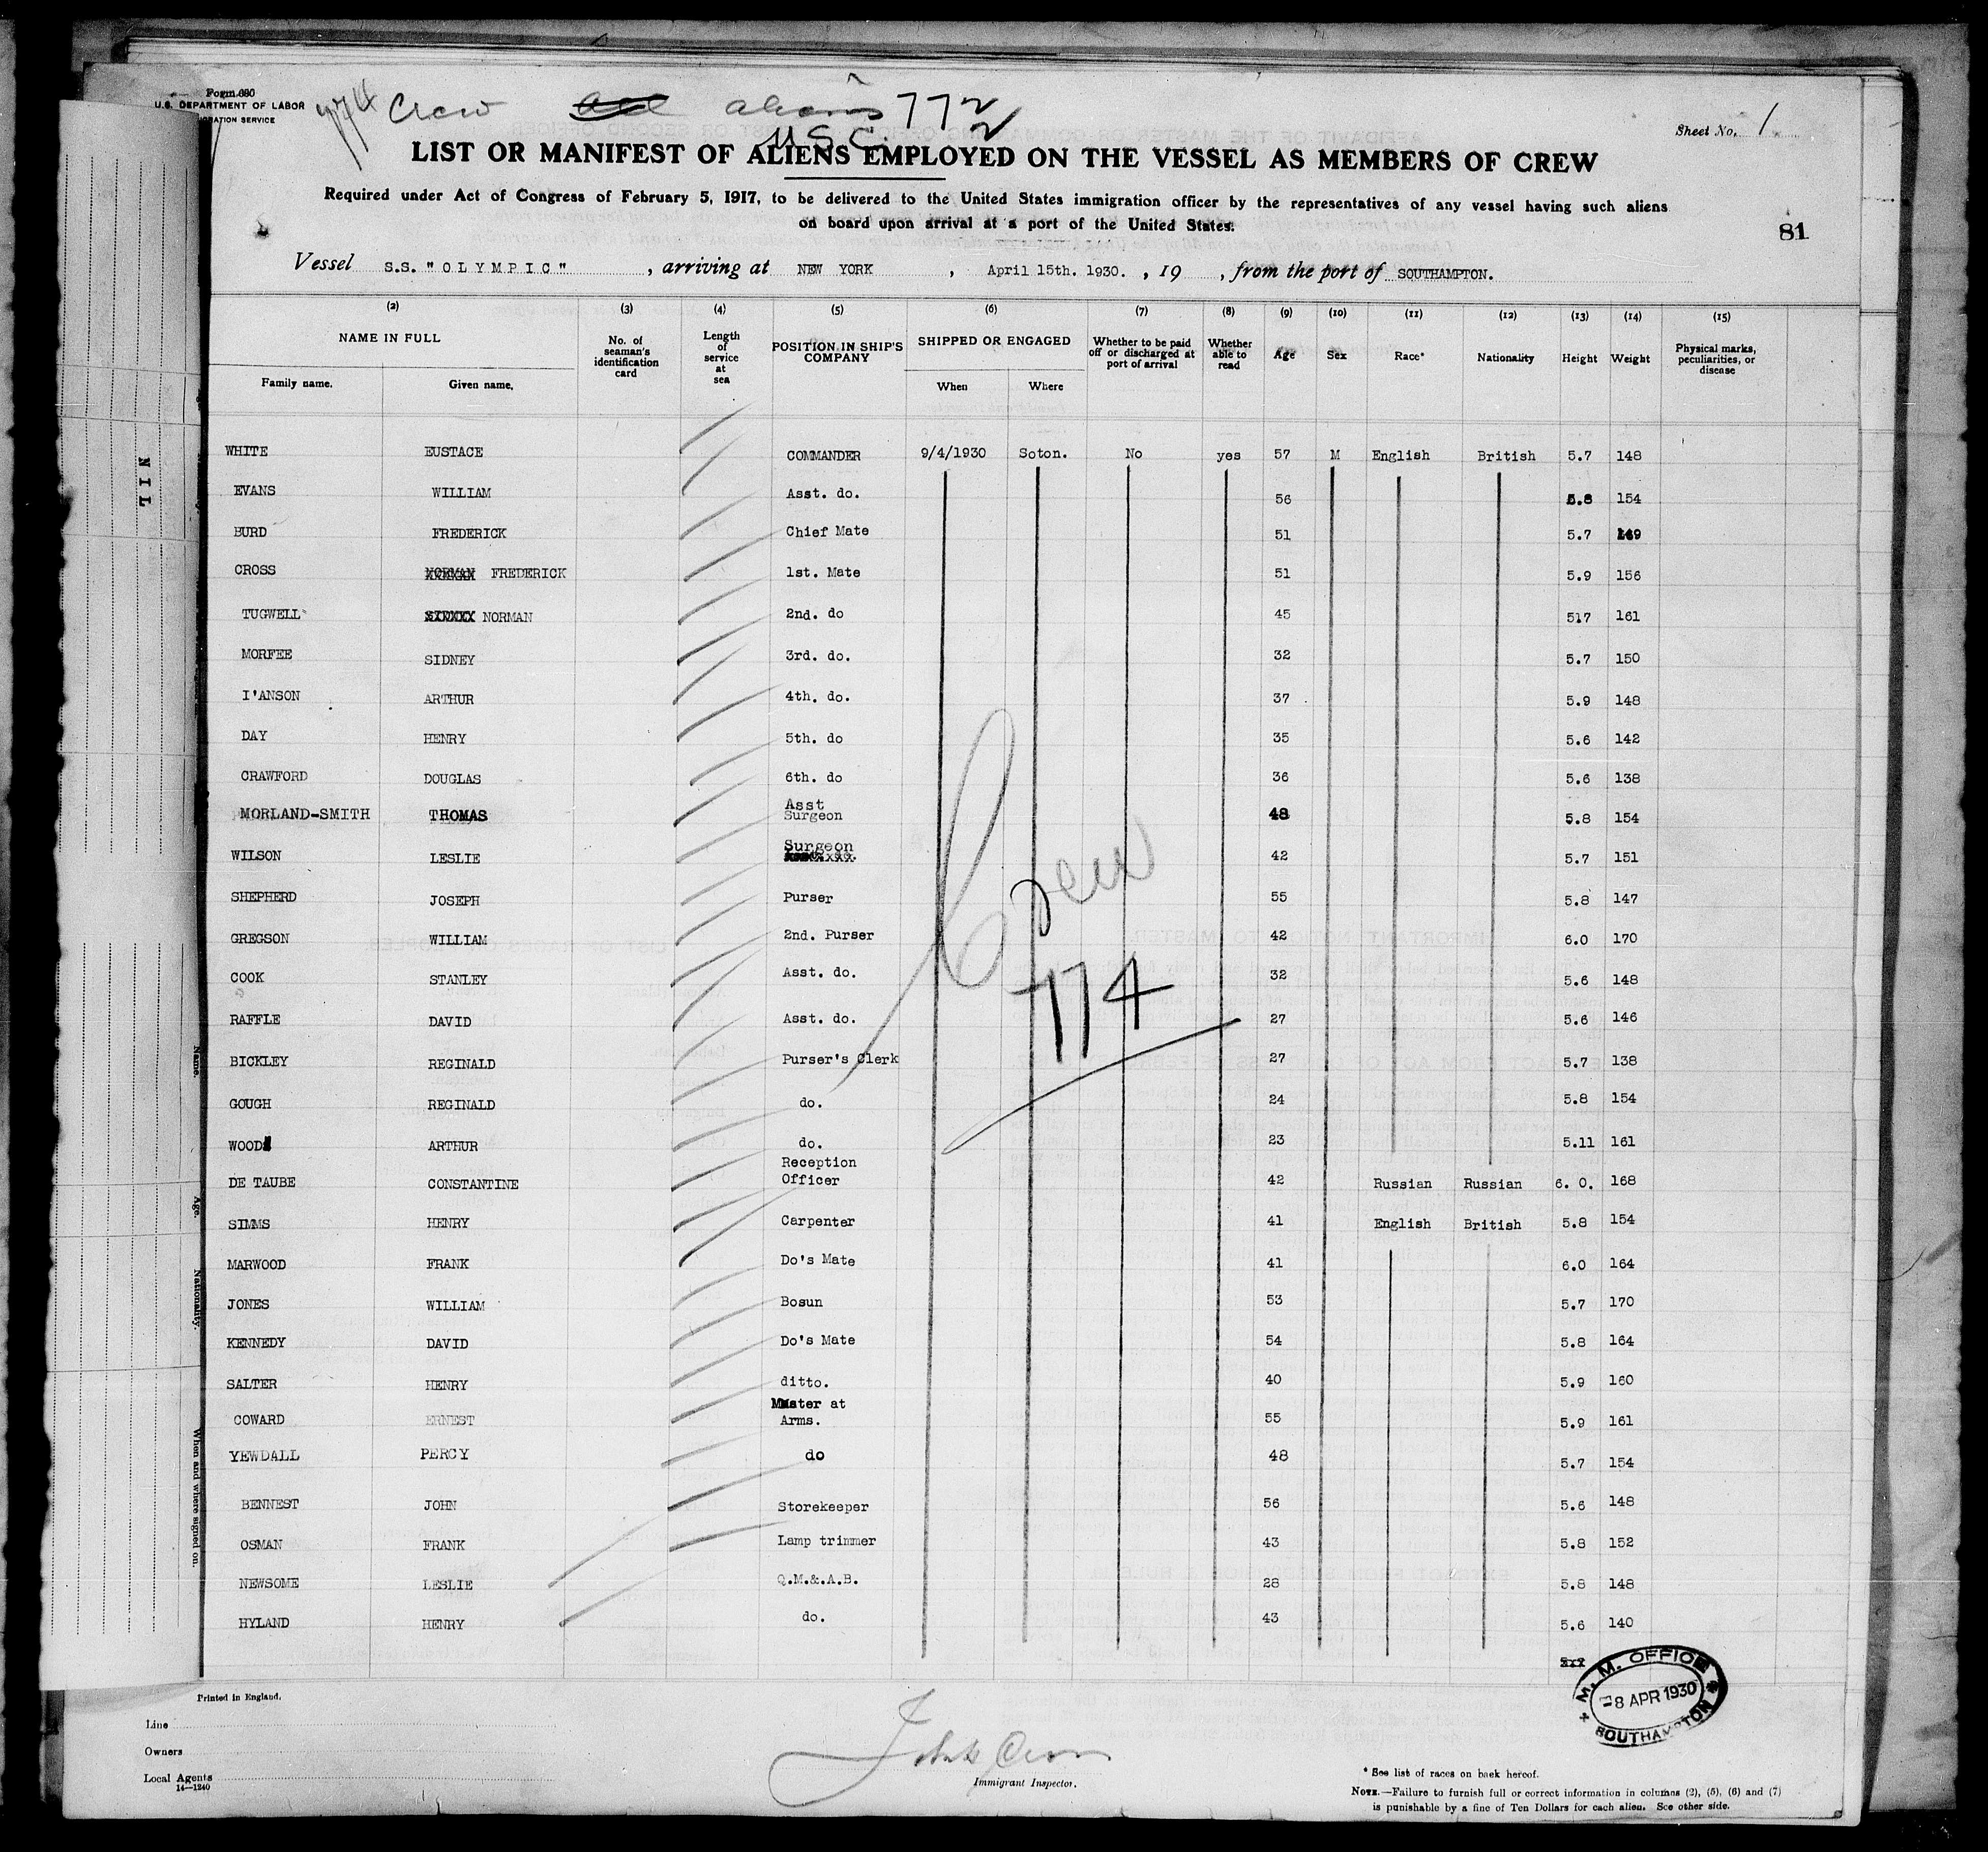 Form 680
U.S. DEPARTMENT OF LABOR
IMMIGRATION SERVICE
Crew aliens 772
U S C 2
Sheet No. 1
LIST OR MANIFEST OF ALIENS EMPLOYED ON THE VESSEL AS MEMBERS OF CREW
Required under Act of Congress of February 5, 1917, to be delivered to the United States immigration officer by the representatives of any vessel having such aliens
on board upon arrival at a port of the United States.
81
Vessel S.S. "OLYMPIC", arriving at NEW YORK, April 15th. 1930., 19 , from the port of SOUTHAMPTON.
(2) (3) (4) (5) (6) (7) (8) (9) (10) (11) (12) (13) (14) (15)
NAME IN FULL No. of seaman's identification card Length of service at sea POSITION IN SHIP'S COMPANY SHIPPED OR ENGAGED Whether to be paid off or discharged at port of arrival Whether able to read Age Sex Race* Nationality Height Weight Physical marks, peculiarities, or disease
Family name. Given name. When Where
WHITE EUSTACE COMMANDER 9/4/1930 Soton. No yes 57 M English British 5.7 148
EVANS WILLIAM Asst. do. 56 5.8 154
BURD FREDERICK Chief Mate 51 5.7 149
CROSS FREDERICK 1st. Mate 51 5.9 156
TUGWELL NORMAN 2nd. do 45 517 161
MORFEE SIDNEY 3rd. do. 32 5.7 150
I'ANSON ARTHUR 4th. do. 37 5.9 148
DAY HENRY 5th. do 35 5.6 142
CRAWFORD DOUGLAS 6th. do 36 5.6 138
MORLAND-SMITH THOMAS Asst Surgeon 48 5.8 154
WILSON LESLIE Surgeon 42 5.7 151
SHEPHERD JOSEPH Purser 55 5.8 147
GREGSON WILLIAM 2nd. Purser 42 6.0 170
COOK STANLEY Asst. do. 32 5.6 148
RAFFLE DAVID Asst. do. 27 5.6 146
BICKLEY REGINALD Purser's Clerk 27 5.7 138
GOUGH REGINALD do. 24 5.8 154
WOOD ARTHUR do. 23 5.11 161
DE TAUBE CONSTANTINE Reception Officer 42 Russian Russian 6. 0. 168
SIMMS HENRY Carpenter 41 English British 5.8 154
MARWOOD FRANK Do's Mate 41 6.0 164
JONES WILLIAM Bosun 53 5.7 170
KENNEDY DAVID Do's Mate 54 5.8 164
SALTER HENRY ditto. 40 5.9 160
COWARD ERNEST Master at Arms. 55 5.9 161
YEWDALL PERCY do 48 5.7 154
BENNEST JOHN Storekeeper 56 5.6 148
OSMAN FRANK Lamp trimmer 43 5.8 152
NEWSOME LESLIE Q.M.&.A.B. 28 5.8 148
HYLAND HENRY do. 43 5.6 140
Crew
774
NIL
Name.
Age.
Nationality.
When and where signed on.
M. M. OFFICE
8 APR 1930
SOUTHAMPTON
Printed in England.
Line
Owners
Local Agents
14—1240
Immigrant Inspector.
* See list of races on back hereof.
NOTE.—Failure to furnish full or correct information in columns (2), (5), (6) and (7)
is punishable by a fine of Ten Dollars for each alien. See other side.